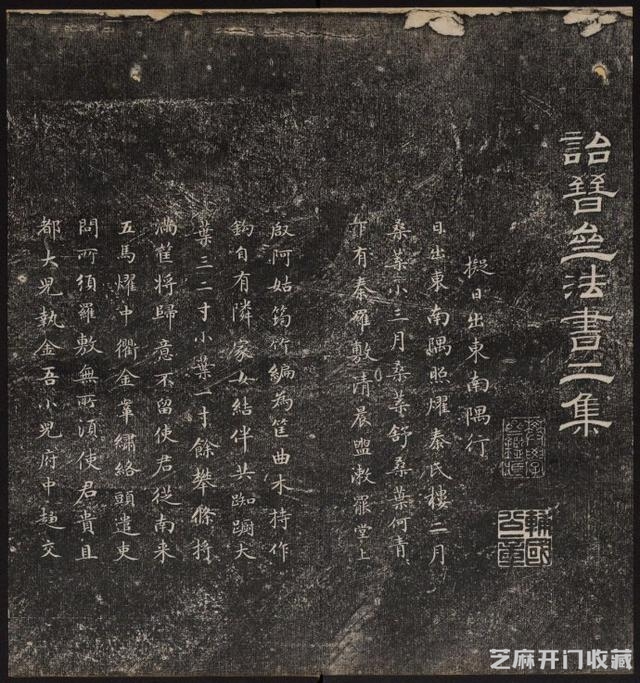 詒晉齋法書二集
擬日出東南隅行
日出東南隅照燿秦氏樓二月
桑葉小三月桑葉舒桑葉何青
乍有秦羅敷清晨盥漱罷堂上
啟阿姑筠竹編為筐曲木持作
鈎自有隣家女結伴共踟躕大
葉三二寸小葉一寸餘攀條將
滿筐將歸意不留使君從南来
五馬燿中衢金羈繡絡頭遣吏
問所須羅敷無所須使君貴且
都大兒執金吾小兒府中趨交
芝麻开门收藏